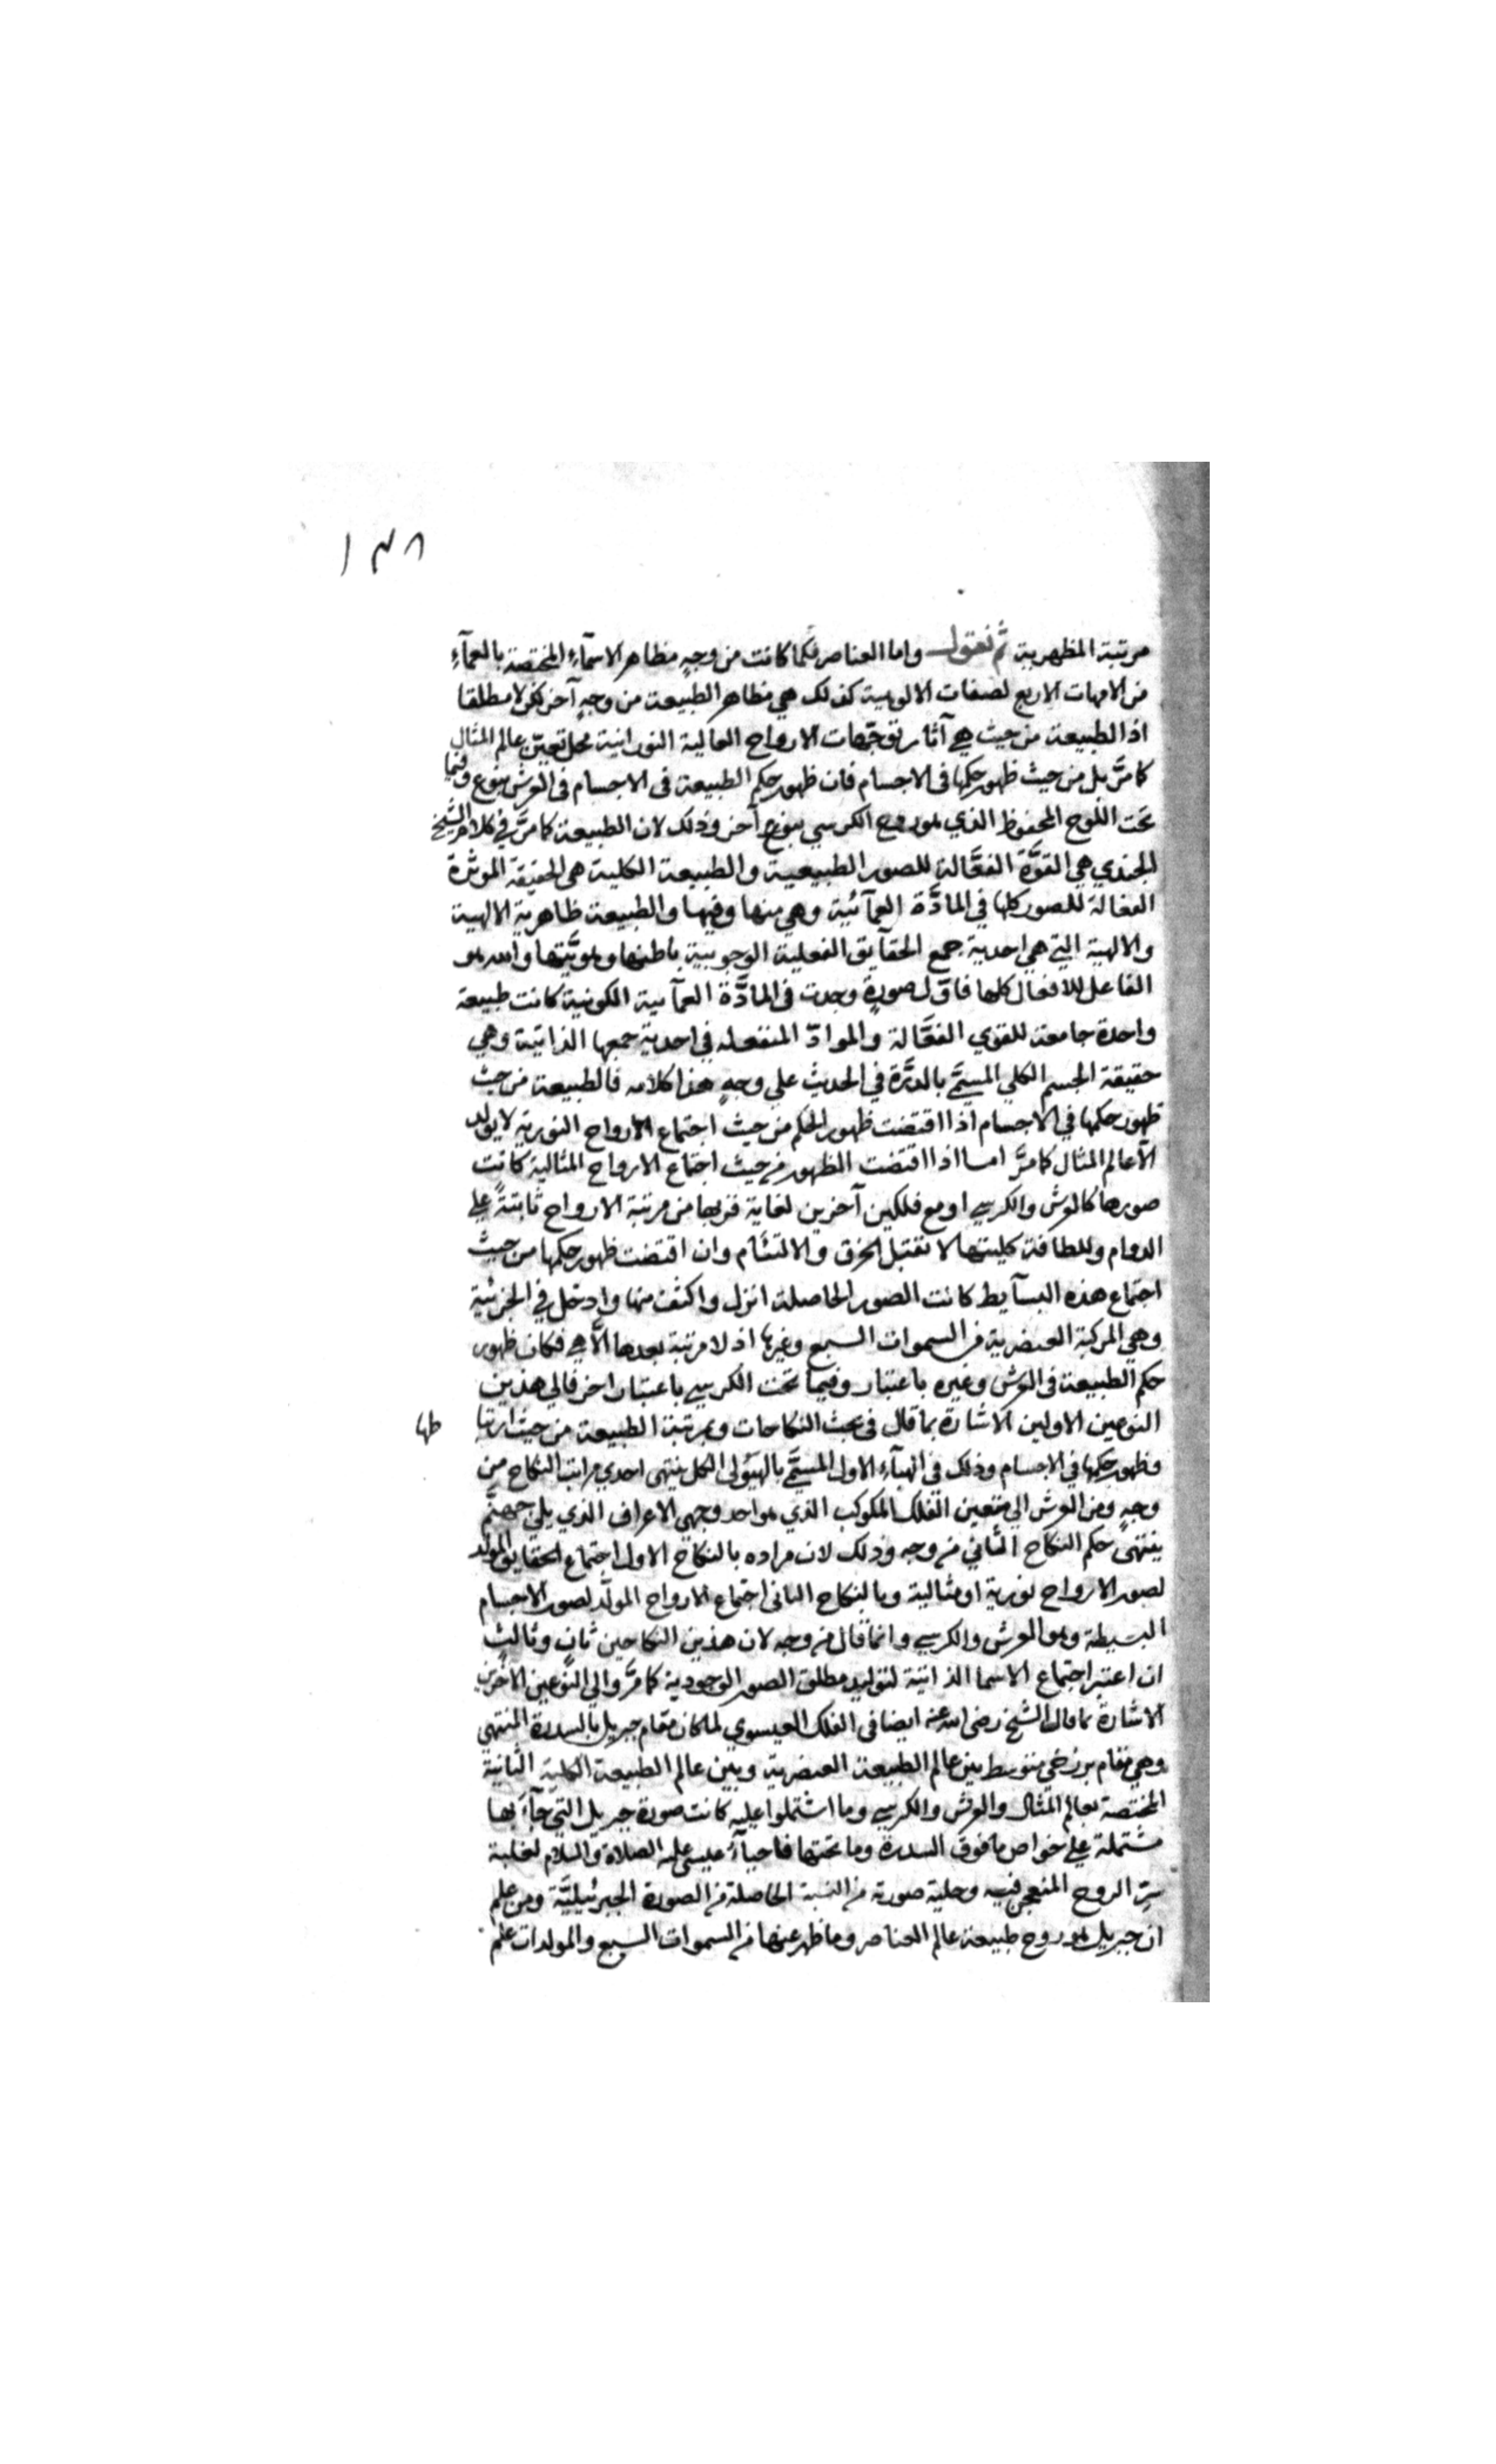 ١٣٨
مرتبة المظهرية ثم نقول واما العناصر فكما كانت من وجه مظاهر الاسمآء المختصة بالعمآء
من الامهات الاربع لصفات الالوهية كذلك هي مظاهر الطبيعة من وجه آخر لكن لا مطلقا
اذ الطبيعة من حيث هي آثار توجّهات الارواح العالية النورانية محل تعيّن عالم المثال
كما مرَّ بل من حيث ظهور حكمها في الاجسام فان ظهور حكم الطبيعة في الاجسام في العرش بنوع وفيما
تحت اللوح المحفوظ الذي هو روح الكرسي بنوع آخر وذلك لان الطبيعة كما مرَّ في كلام الشيخ
الجندي هي القوَّة الفعَّالة للصور الطبيعية والطبيعة الكلية هي الحقيقة الموثرة
الفعالة للصور كلها في المادَّة العمآئية وهي منها وفيها والطبيعة ظاهرية الالهية
والالهية التي هي احدية جمع الحقآيق الفعلية الوجوبية باطنها وهويَّتها والله هو
الفاعل للافعال كلها فاوّل صورة وجدت في المادَّة العمآمية الكونية كانت طبيعة
واحدة جامعة للقوي الفعَّالة والموادّ المنفعله في احدية جمعها الذاتية وهي
حقيقة الجسم الكلي المسمَّى بالدرَّة في الحديث علي وجهٍ هذا كلامه فالطبيعة من حيث
ظهور حكمها في الاجسام اذا اقتضت ظهور الحكم من حيث اجتماع الارواح النورية لا يولد
الّا عالم المثال كما مرَّ اما اذا اقتضت الظهور من حيث اجتماع الارواح المثالية كانت
صورها كالعرش والكرسي او مع فلكين آخرين لغاية قربها من مرتبة الارواح ثابتةً علي
الدوام وللطافة كليتها لا تقبل الخرق والالتئام وان اقتضت ظهور حكمها من حيث
اجتماع هذه البسآيط كانت الصور الحاصلة انزل واكثف منها وادخل في الجزئية
وهي المركبة العنصرية من السموات السبع وغيرها اذ لا مرتبة بعدها الَّا هي فكان ظهور
حكم الطبيعة في العرش وغيره باعتبار وفيما تحت الكرسي باعتبار اخر فالي هذين
النوعين الاولين الاشارة بما قال في بحث النكاحات وبمرتبة الطبيعة من حيث ارتبا
طها
وظهور حكمها في الاجسام وذلك في الهبآء الاول المسمَّى بالهيُولي الكل ينتهي احدي مراتب النكاح من
وجهٍ ومن العرش الي مقعين الفلك المكوكب الذي هو احد وجهي الاعراف الذي يلي جهنَّم
ينتهى حكم النكاح الثاني من وجه وذلك لان مراده بالنكاح الاول اجتماع الحقايق المولد
لصور الارواح نورية او مثالية وبالنكاح الثاني اجتماع الارواح المولّد لصور الاجسام
البسيطة وهو العرش والكرسي وانما قال من وجه لان هذين النكاحين ثانٍ وثالثٍ
ان اعتبر اجتماع الاسما الذاتية لتوليد مطلق الصور الوجودية كما مرَّ والي النوعين الآخرين
الاشارة بما قال الشيخ رضي الله عنه ايضا في الفلك العيسوي لما كان مقام جبريل بالسدرة المنتهي
وهي مقام برزخي متوسط بين عالم الطبيعة العنصرية وبين عالم الطبيعة الكلية الثانية
المختصة بعالم المثال والعرش والكرسي وما اشتملوا عليه كانت صورة جبريل التي جآء بها
مشتملة علي خواص ما فوق السدرة وما تحتها فاحيآء عيسى عليه الصلاة والسلام لغلبة
سرّ الروح المنعجن فيه وحلية صورته من النسبة الحاصلة من الصورة الجبرئيليَّة ومن علم
ان جبريل هو روح طبيعة عالم العناصر وما ظهر عنها من السموات السبع والمولدات علم